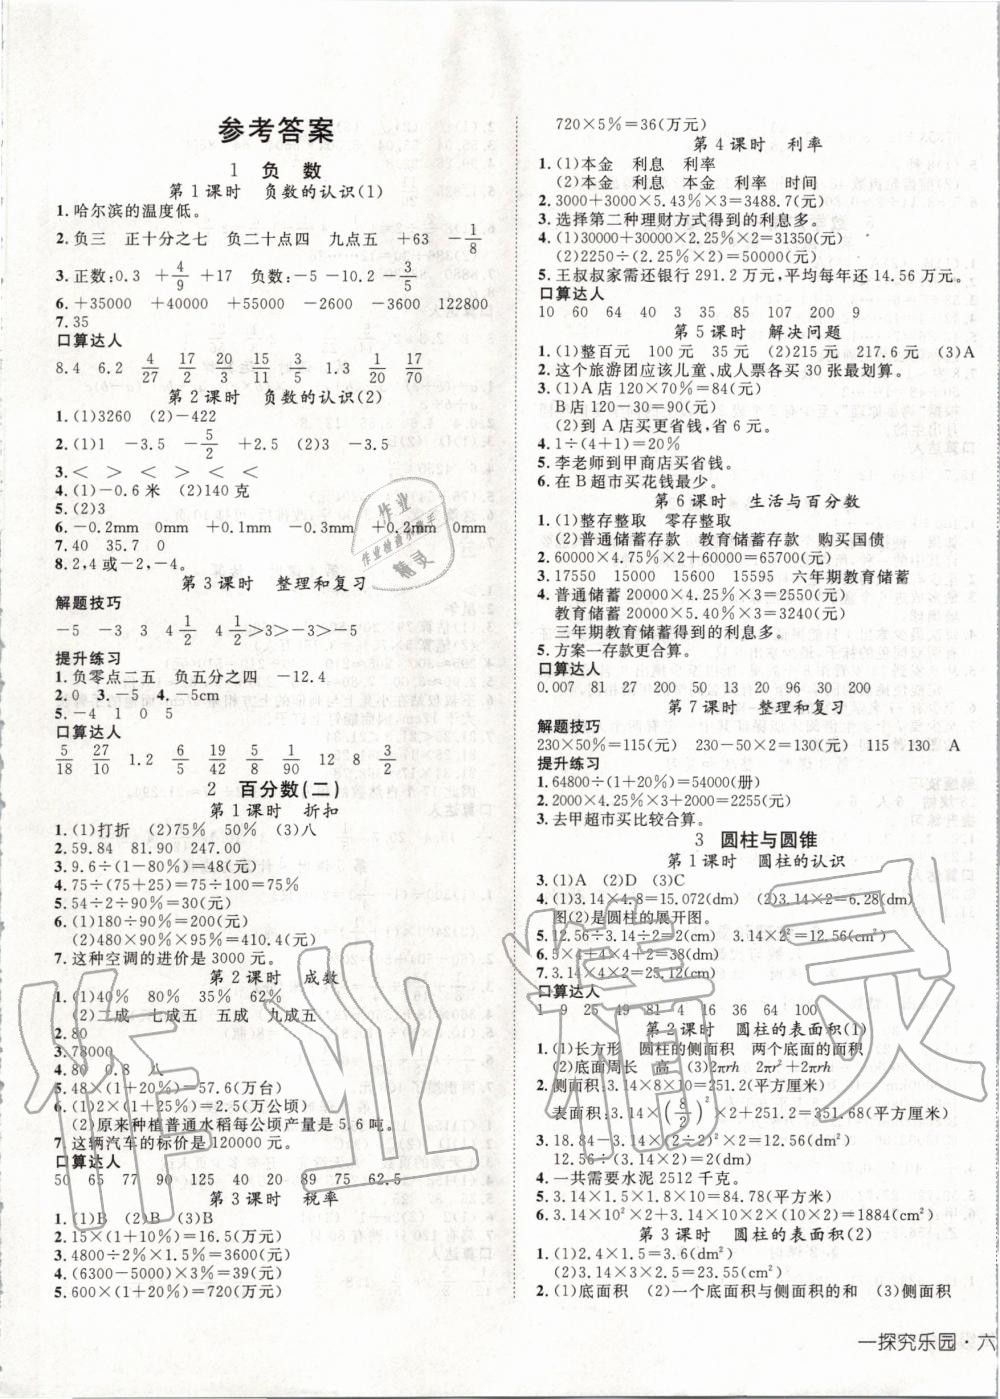 参考答案
1 负 数
第1课时 负数的认识(1)
1.哈尔滨的温度低。
2.负三 正十分之七 负二十点四 九点五 +63 -1/8
3.正数:0.3 +4/9 +17 负数:-5 -10.2 -3/5
6.+35000 +40000 +55000 -2600 -3600 122800
7.35
口算达人
8.4 6.2 4/27 17/2 20/3 15/11 3/5 1.3 17/20
第2课时 负数的认识(2)
1.(1)3260 (2)-422
2.(1)1 -3.5 -5/2 +2.5 (2)3 -3.5
3.< < > < >
4.(1)-0.6米 (2)140克
5.(2)3
6.-0.2mm 0mm +0.1mm -0.3mm +0.2mm 0mm
7.40 35.7 0
8.2,4或-2,-4。
第3课时 整理和复习
解题技巧
-5 -3 3 4 1/2 4 1/2>3>-3>-5
提升练习
1.负零点二五 负五分之四 -12.4
2.0 3.-5 4.-5cm
5.-4 1 0 5
口算达人
5/18 27/10 1.2 6/35 19/42 5/6 1/90 12 8 3/2
2 百分数(二)
第1课时 折扣
1.(1)打折 (2)75% 50% (3)八
2.59.84 81.90 247.00
3.9.6÷(1-80%)=48(元)
4.75÷(75+25)=75%=七五折
5.54÷2÷90%=30(元)
6.(1)180÷90%=200(元)
(2)480×90%×95%=410.4(元)
7.这种空调的进价是3000元。
第2课时 成数
1.(1)40% 80% 35% 62%
(2)二成 七成五 五成 九成五
2.80
3.78000
4.80 0.8 八
5.48×(1+20%)=57.6(万台)
6.(1)2×(1+25%)=2.5(万公顷)
(2)原来种植普通水稻每公顷产量是5.6吨。
7.这辆汽车的标价是120000元。
口算达人
50 65 77 90 125 40 20 89 75 62.5
第3课时 税率
1.(1)B (2)B (3)B
2.15×(1+10%)=16.5(万元)
3.4800÷2%×1.5%=3600(元)
4.(6300-5000)×3%=39(元)
5.600×(1+20%)=720(万元)
720×5%=36(万元)
第4课时 利率
1.(1)本金 利息 利率
(2)本金 利息 本金 利率 时间
2.3000+3000×5.43%×3=3488.7(元)
3.选择第二种理财方式得到的利息多。
4.(1)30000+30000×2.25%×2=31350(元)
(2)2250÷(2.25%×2)=50000(元)
5.王叔叔家需还银行291.2万元,平均每年还14.56万元。
口算达人
10 60 64 40 3 35 85 107 200 9
第5课时 解决问题
1.(1)整百元 100元 35元 (2)215元 217.6元 (3)A
2.这个旅游团应该儿童、成人票各买30张最划算。
3.(1)A店120×70%=84(元)
B店120-30=90(元)
(2)到A店买更省钱,省6元。
4.1÷(4+1)=20%
5.李老师到甲商店买省钱。
6.在B超市买花钱最少。
第6课时 生活与百分数
1.(1)整存整取 零存整取
(2)普通储蓄存款 教育储蓄存款 购买国债
2.60000×4.75%×2+60000=65700(元)
3.17550 15150 15600 15595 六年期教育储蓄
4.普通储蓄20000×4.25%×3=2550(元)
教育储蓄20000×5.40%×3=3240(元)
三年期教育储蓄得到的利息多。
5.方案一存款更合算。
口算达人
0.007 81 27 200 50 13 20 96 30 200
第7课时 整理和复习
解题技巧
230×50%=115(元) 230-50×2=130(元) 115 130 A
提升练习
1.64800÷(1+20%)=54000(册)
2.2000×4.25%×3+2000=2255(元)
3.去甲超市买比较合算。
3 圆柱与圆锥
第1课时 圆柱的认识
3.(1)A (2)D (3)C
4.(1)3.14×4.8=15.072(dm) (2)3.14×2=6.28(dm)
图(2)是圆柱的展开图。
5.12.56÷3.14÷2=2(cm) 3.14×2²=12.56(cm²)
6.5×4+4×4+2=38(dm)
7.3.14×2×4=25.12(cm)
口算达人
1 9 25 49 81 4 16 36 64 100
第2课时 圆柱的表面积(1)
1.(1)长方形 圆柱的侧面积 两个底面的面积
(2)底面周长 高 (3)2πrh 2πr² 2πr²+2πrh
2.侧面积:3.14×8×10=251.2(平方厘米)
表面积:3.14×(8/2)²×2+251.2=351.68(平方厘米)
3.18.84-3.14×(2÷2)²×2=12.56(dm²)
12.56÷(3.14×2)=2(dm)
4.一共需要水泥2512千克。
5.3.14×1.5×2×9=84.78(平方米)
6.3.14×10²×2+3.14×10×2×(10×2)=1884(cm²)
第3课时 圆柱的表面积(2)
1.(1)2.4×1.5=3.6(dm²)
(2)3.14×3×2.5=23.55(cm²)
2.(1)底面积 (2)一个底面积与侧面积的和 (3)侧面积
一探究乐园·六
作业精灵
作业
作业检查
精灵